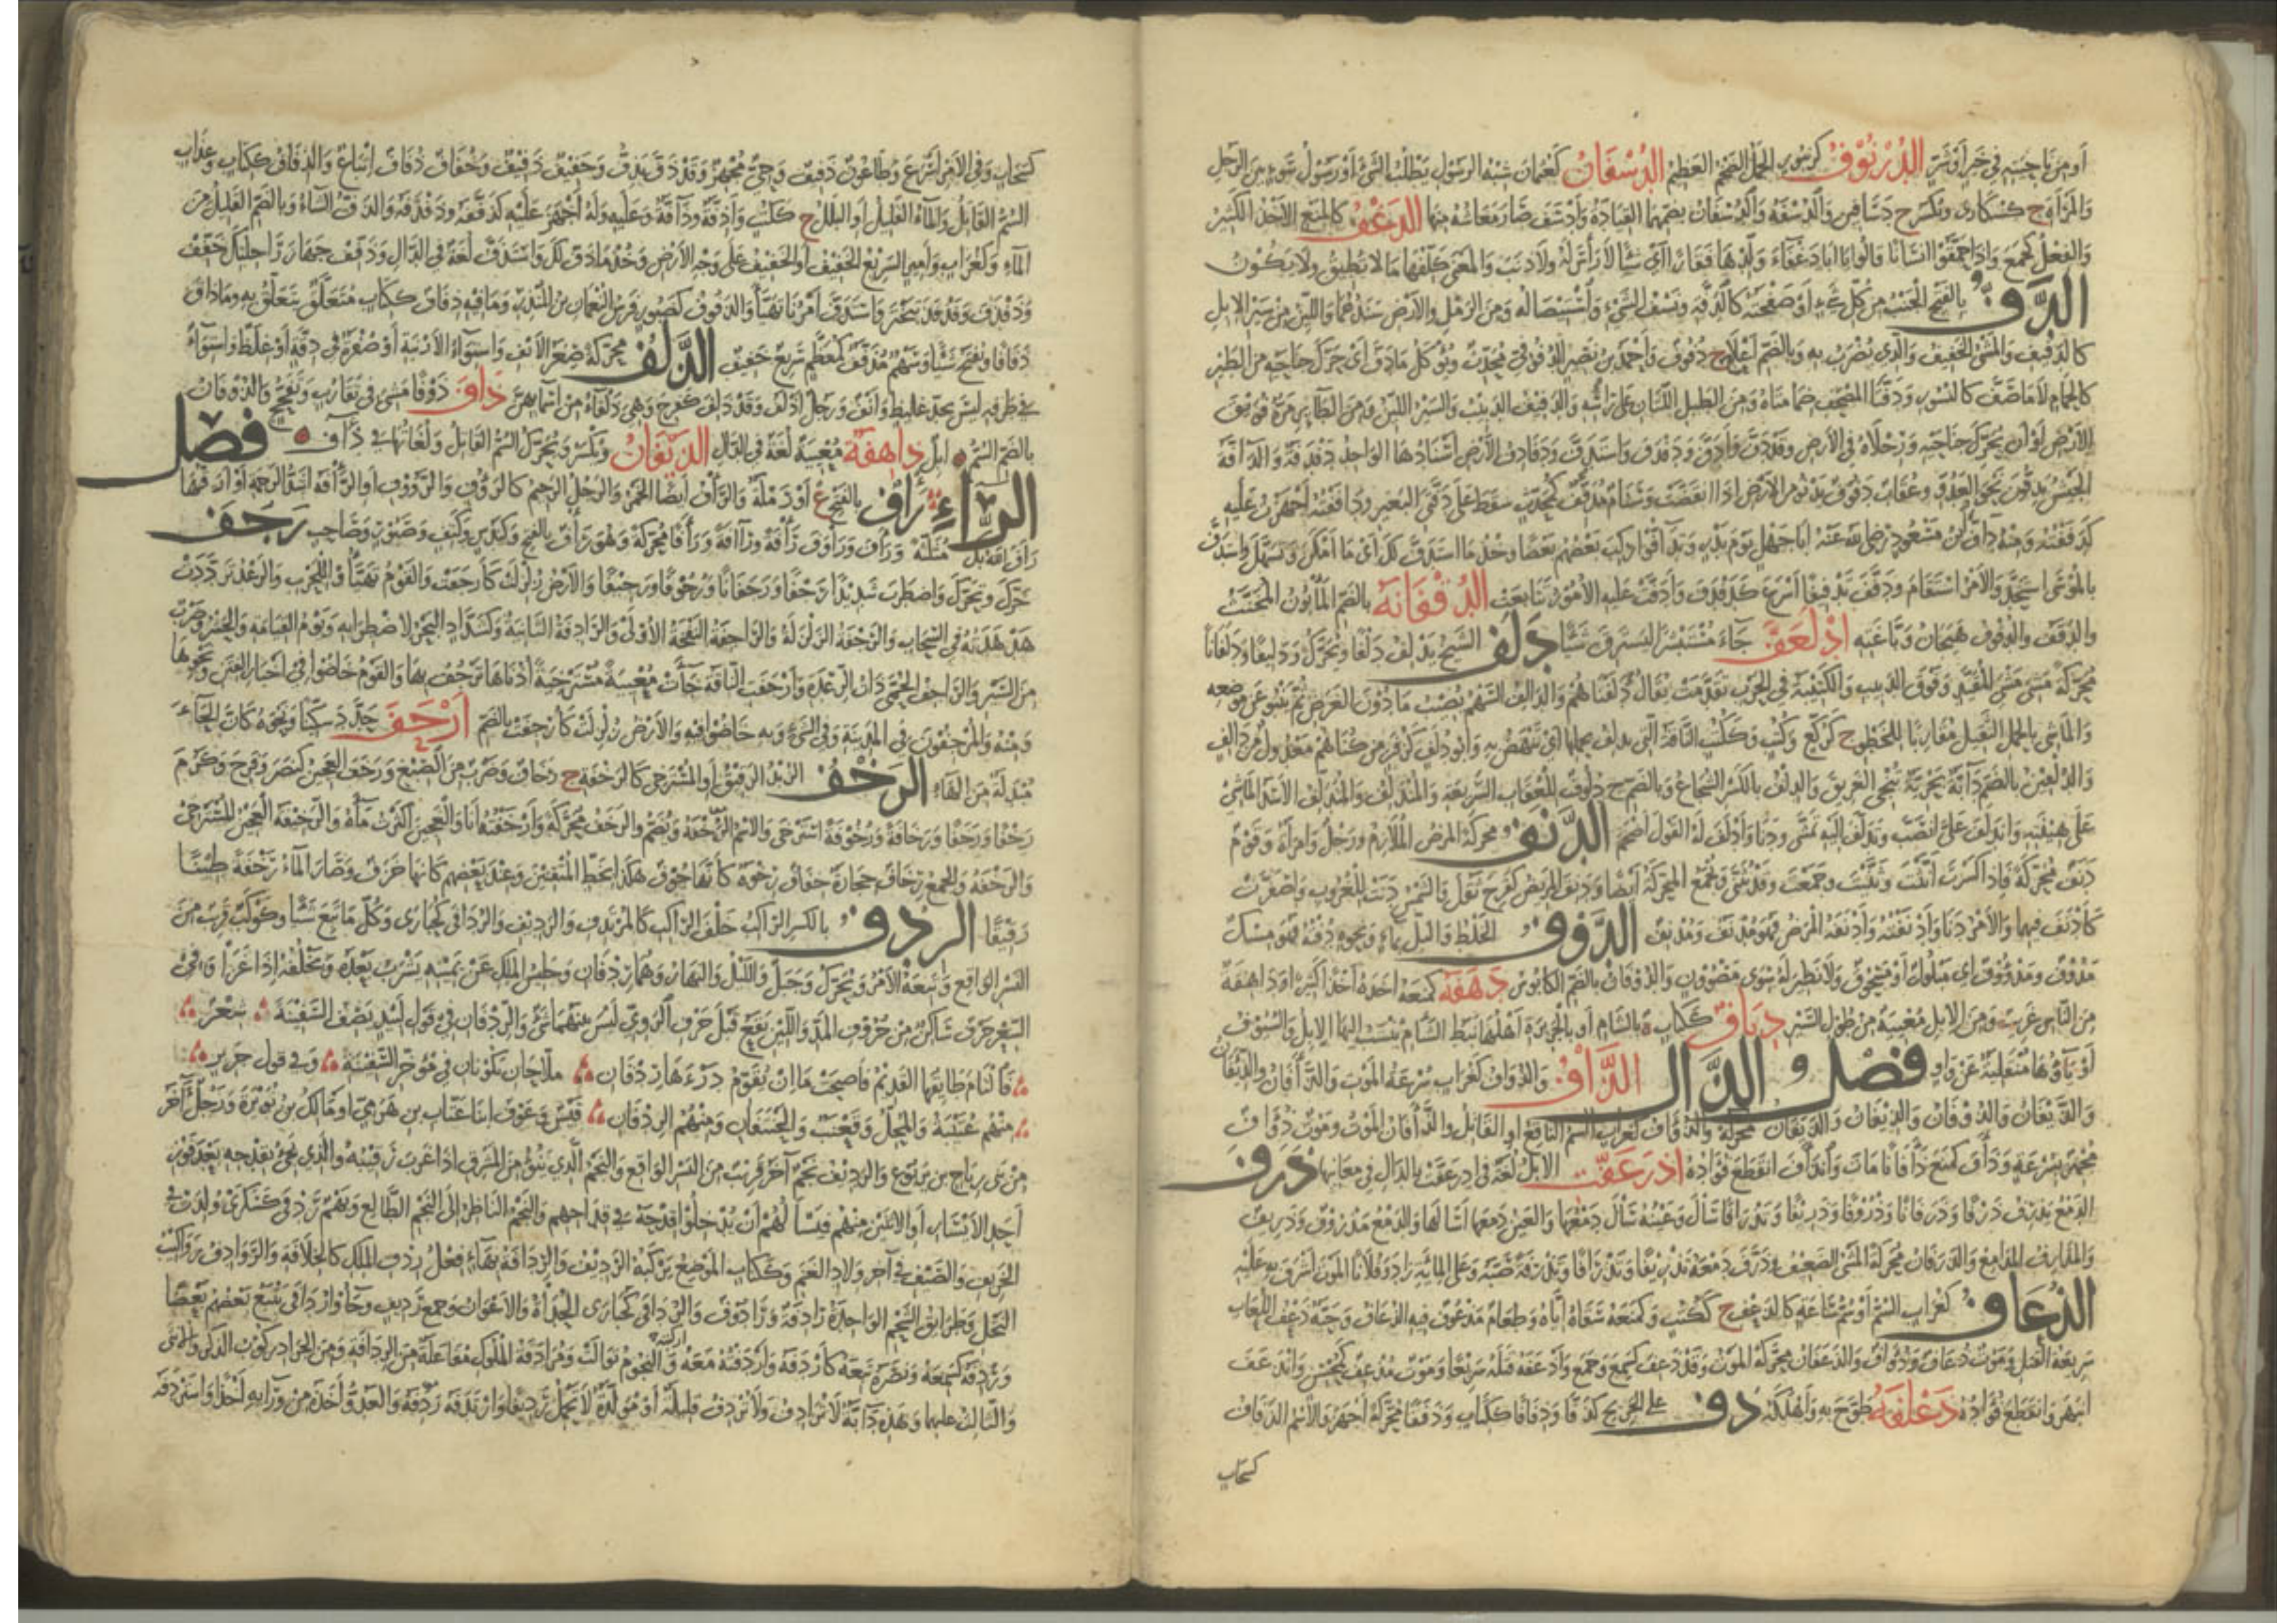 أو من ناحيته في خير أو شر الدرنوف كزنبور الجمل الضخم العظيم الدسفان كعثمان شبه الرسول يطلب الشيء أو رسول سوء بين الرجل
والمرأة ج كسكارى ويكسر ج دسافين والدسفة والدسفان بضمهما القيادة وأدسف صار معاشه منها الدغف كالمنع الأخذ الكثير
والفعل كجمع وإذا حمقوا إنسانا قالوا يا أبا دغفاء ولدها فقارا أي شيئا لا رأس له ولا ذنب والمعنى كلفها ما لا تطيق ولا يكون
الدف بالفتح الجنب من كل شيء أو صفحته كالدفة ونسف الشيء واستئصاله ومن الرمل والأرض سندهما واللين من سير الإبل
كالدفيف والمشي الخفيف والذي يضرب به وبالضم أعلى ج دفوف وأحمد بن نصير الدفوفي محدث ويؤكل ما دف أي حرك جناحيه من الطير
كالحمام لا ما صف كالنسور ودفتا المصحف ضمامتاه ومن الطبل اللتان على رأسه والدفيف الدبيب والسير اللين ومن الطائر مره فويق
الأرض أو أن يحرك جناحيه ورجلاه في الأرض وقد دف وأدف ودفدف واستدف ودفادف الأرض أسنادها الواحد دفدفة والدافة
الجيش يدفون نحو العدو وعقاب دفوف يدنو من الأرض إذا انقضت وسنام مدفف كمحدث سقط على دفي البعير ودففته أجهزت عليه
كدففته ومنه داف ابن مسعود رضي الله عنه أبا جهل يوم بدر وتدافوا ركب بعضهم بعضا وخذ ما استدف لك أي ما أمكن وتسهل واستدف
بالموسى استحد والأمر استقام ودفف تدفيفا أسرع كدفدف وأدفت عليه الأمور تتابعت الدقفانة بالضم المأبون المخنث
والدقف والدقوف هيجان وباغته ادلعف جاء متسترا ليسترق شيئا دلف الشيخ يدلف دلفا ويحرك ودليفا ودلفانا
محركة مشى مشي المقيد وفوق الدبيب والكتيبة في الحرب تقدمت يقال دلفناهم والدالف السهم يصيب ما دون الغرض ثم ينبو عن موضعه
والماشي بالحمل الثقيل مقاربا للخطو ج كركع وكتب وككتب الناقة التي تدلف بحملها أي تنهض به وأبو دلف كزفر من كناهم معدول من دالف
والدلفين بالضم دابة بحرية تنجي الغريق والدلف بالكسر الشجاع وبالضم ج دلوف للعقاب السريعة والمندلف والمتدلف الأسد الماشي
على هينته واندلف علي انصب وتدلف إليه تمشى ودنا وأدلف له القول أضخم الدنف محركة المرض الملازم ورجل وامرأة وقوم
دنف محركة فإذا كسرت أنثت وثنيت وجمعت وقد يثنى ويجمع المحركة أيضا ودنف المريض كفرح ثقل والشمس دنت للغروب واصفرت
كأدنف فيهما والأمر دنا وأدنفته وأدنفه المرض فهو مدنف ومدنف الدوف الخلط والبل بماء ونحوه دفته فهو مسك
مدوف ومدووف أي مبلول أو مسحوق ولا نظير له سوى مصوون والدوفان بالضم الكابوس دهفه كمنعه أخذه أخذا كثيرا والداهفة
من الناس غريب ومن الإبل معيية من طول السير دياف ككتاب ة بالشام أو بالجزيرة أهلها نبط الشام تنسب إليها الإبل والسيوف
أو ياؤها منقلبة عن واو فصل الذال الذأف والذؤاف كغراب سرعة الموت والذأفان والذيفان
والذيفان والذوفان والذيفان والذيفان محركة والذؤاف كغراب السم الناقع أو القاتل والذأفان الموت وموت ذؤاف
مجهز بسرعة وذأف كمنع ذأفانا مات وانذأف انقطع فؤاده اذرعفت الإبل لغة في ادرعفت بالدال في معانيها ذرف
الدمع يذرف ذرفا وذرفانا وذروفا وذريفا وتذرافا سال وعينه سال دمعها والعين دمعها أسالها والدمع مذروف وذريف
والمذارف المدامع والذرفان محركة المشي الضعيف وذرف دمعه تذريفا وتذرافا وتذرفة صبه وعلى المائة زاد وفلانا الموت أشرف به عليه
الذعاف كغراب السم أو سم ساعة كالذعف ج ككتب وكمنعه سقاه إياه وطعام مذعوف فيه الذعاف وحية ذعف اللعاب
سريعة القتل وموت ذعاف وذؤاف والذعفان محركة الموت وقد ذعف كسمع وجمع وأذعفه قتله سريعا وموت مذعف كمحسن وانذعف
انبهر وانقطع فؤاده ذعلفه طوح به وأهلكه ذف على الجريح كذفا وذفافا ككتاب وذففا محركة أجهز والاسم الذفاف
كسحاب
كسحاب وفي الأمر أسرع وطاعون ذفيف وحي مجهز وقد ذف يذف وخفيف ذفيف وخفاف ذفاف إتباع والذفاف ككتاب وغراب
السم القاتل والماء القليل أو البلل ج ككتب وأذفة وذافه وعليه وله أجهز عليه كذففه وذفذفه والذف الشاء وبالضم القليل من
الماء وكغراب وأمير السريع الخفيف أو الخفيف على وجه الأرض وخذ ما ذف لك واستذف لغة في الدال وذفف جهاز راحلتك خفف
وذفذف وقد تبختر واستذف أمرنا تهيأ والذفوف كصبور فرس النعمان بن المنذر وما فيه ذفاف ككتاب متعلق يتعلق به وما ذاق
ذفافا ويفتح شيئا وسهم مذفف كمعظم سريع خفيف الذلف محركة صغر الأنف واستواء الأرنبة أو صغره في دقة أو غلظ واستواء
في طرفه ليس بحد غليظ وأنف ورجل أذلف وقد ذلف كفرح وهي ذلفاء من أسمائهن ذاف ذوفا مشى في تقارب وتفحج والذوفان
بالضم السم إبل ذاهفة معيية لغة في الدال الذيفان ويكسر ويحرك السم القاتل ولغاتها في ذأف فصل
الراء رأف بالفتح ع أو رملة والرأف أيضا الخمر والرجل الرحيم كالرؤف والرؤوف أو الرأفة أشد الرحمة أو أرقها
رأف الله بك مثلثة ورأف ورأوف رأفة ورآفة ورأفا محركة وهو رأف بالفتح وكندس وكتف وصبور وصاحب رجف
حرك وتحرك واضطرب شديدا رجفا ورجفانا ورجوفا ورجيفا والأرض زلزلت كأرجفت والقوم تهيأوا للحرب والرعد ترددت
هدهدته في السحاب والرجفة الزلزلة والراجفة النفخة الأولى والرادفة الثانية وكشداد البحر لاضطرابه ويوم القيامة والجسر وضرب
من السير والراجف الحمى ذات الرعدة وأرجفت الناقة جاءت معيية مسترخية أذناها ترجف بهما والقوم خاضوا في أخبار الفتن ونحوها
ومنه والمرجفون في المدينة وفي الشيء وبه خاضوا فيه والأرض زلزلت كأرجفت بالضم أرحف حدد سكينا ونحوه كأن الحاء
مبدلة من الهاء الرخف الزبد الرقيق أو المسترخي كالرخفة ج رخاف وضرب من الصبغ ورخف العجين كنصر وفرح وكرم
رخفا ورخفا ورخافة ورخوفة استرخى والاسم الرخفة ويضم والرخف محركة وأرخفته أنا والعجين أكثرت ماءه والرخيفة العجين المسترخي
والرخفة والجمع رخاف حجارة خفاف رخوة كأنها جوف هكذا بخط المتقنين وعند بعضهم كأنها خزف وصار الماء رخفة طينا
رقيقا الردف بالكسر الراكب خلف الراكب كالمرتدف والرديف والردافى كحبارى وكل ما تبع شيئا وكوكب قريب من
النسر الواقع وتبعة الأمر ويحرك وجبل والليل والنهار وهما ردفان وجليس الملك عن يمينه يشرب بعده ويخلفه إذا غزا وفي
الشعر حرف ساكن من حروف المد واللين يقع قبل حرف الروي ليس بينهما شيء والردفان في قول لبيد يصف السفينة شعر
فالتام طائقها القديم فأصبحت ما إن يقوم درءها ردفان ملاحان يكونان في مؤخر السفينة وفي قول جرير
منهم عتيبة والمحل وقعنب والحنتفان ومنهم الردفان قيس وعوف ابنا عتاب بن هرمي أو مالك بن نويرة ورجل آخر
من بني رياح بن يربوع والرديف نجم آخر قريب من النسر الواقع والنجم الذي ينوء من المشرق إذا غرب رقيبه والذي يجيء بقدحه بعد فوز
أحد الأيسار أو الاثنين منهم فيسألهم أن يدخلوا قدحه في قداحهم والنجم الناظر إلى النجم الطالع وبهم ردفى كسكرى ولدت في
الخريف والصيف في آخر ولاد الغنم وككتاب الموضع يركبه الرديف والردافة بهاء فعل ردف الملك كالخلافة والروادف رواكيب
النخل وطرائق الشحم الواحدة رادفة ورادوف والردافى كحبارى الحداة والأعوان وجمع رديف وجاؤوا ردافى يتبع بعضهم بعضا
وردفه كسمعه ونصره تبعه كأردفه وأردفته معه أركبته والنجوم توالت ومرادفة الملوك مفاعلة من الردافة ومن الجراد ركوب الذكر والأنثى
والثالث عليهما وهذه دابة لا ترادف ولا تردف قليلة أو مولدة لا تحمل رديفا وارتدفه ردفه والعدو أخذه من ورائه أخذا واستردفه